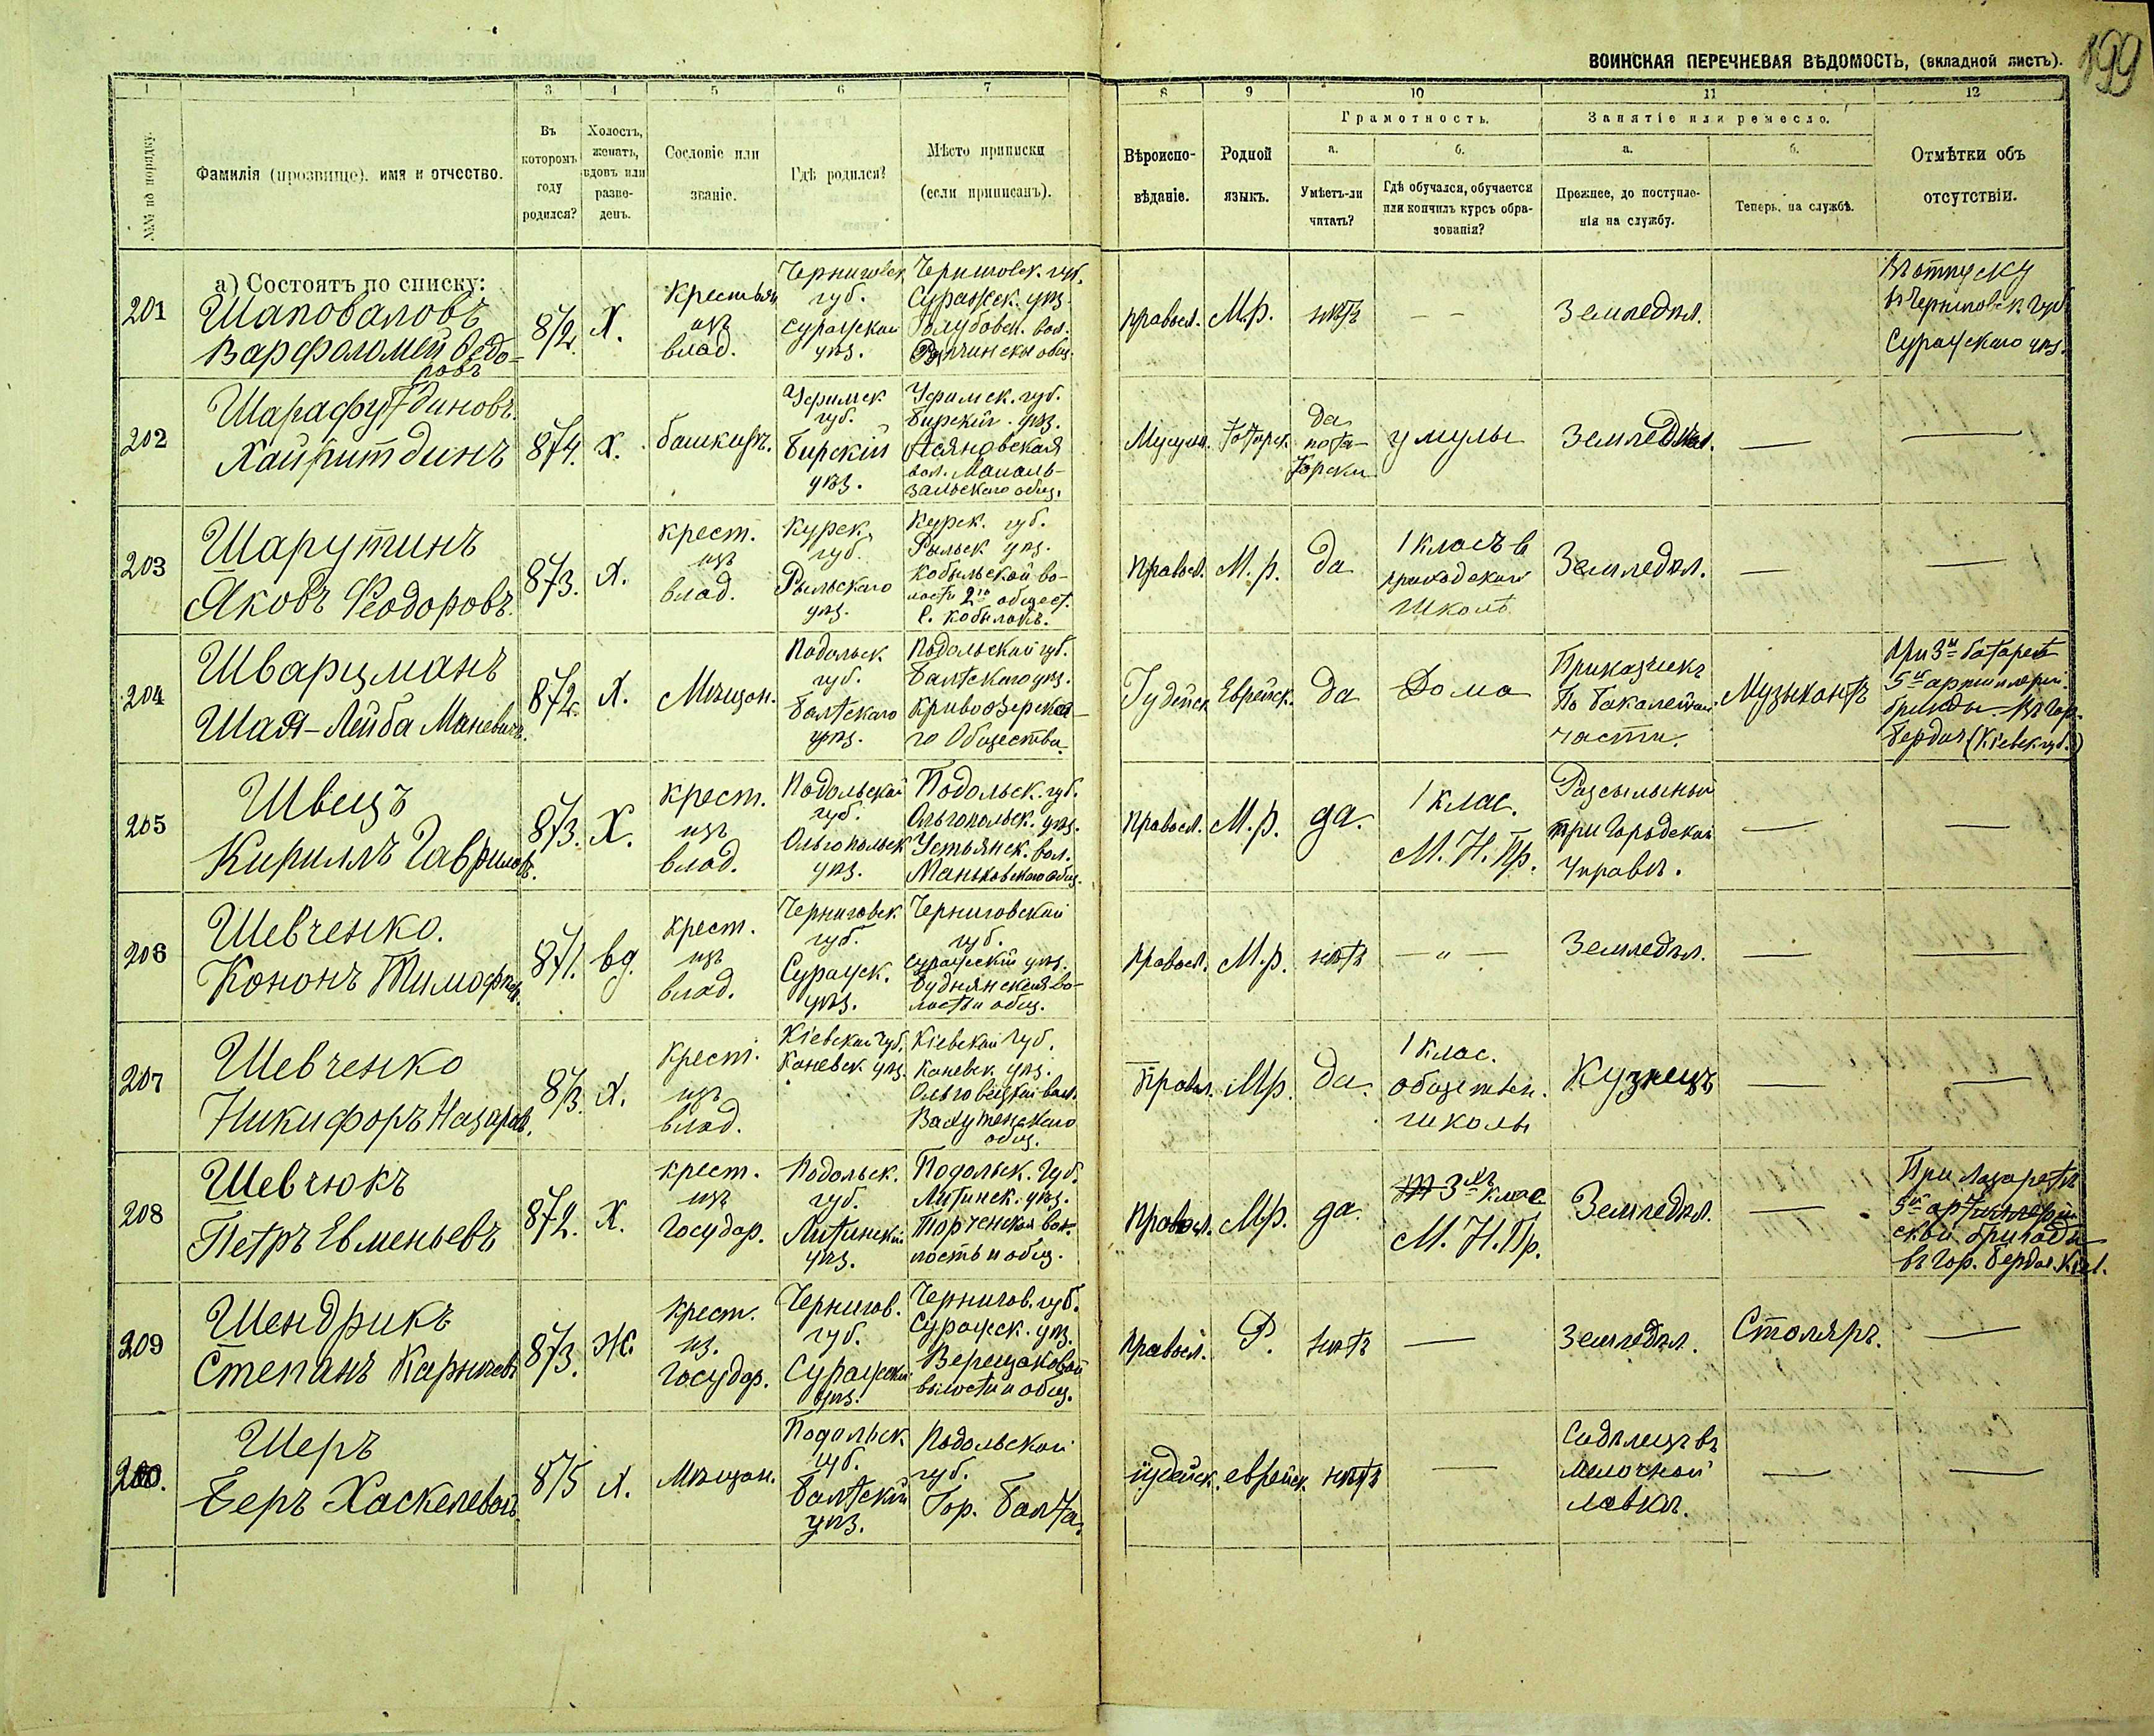 ВОИНСКАЯ ПЕРЕЧНЕВАЯ ВѢДОМОСТЬ, (вкладной листъ).
199
1
3
4
5
6
7
8
9
10
11
12
№№ по порядку.
Фамилія (прозвище), имя и отчество.
Въ
которомъ
году
родился?
Холостъ,
женатъ,
вдовъ или
разве-
денъ.
Сословіе или
званіе.
Гдѣ родился?
Мѣсто приписки
(если приписанъ).
Вѣроиспо-
вѣданіе.
Родной
языкъ.
Грамотность.
а.
Умѣетъ-ли
читать?
б.
Гдѣ обучался, обучается
или кончилъ курсъ обра-
зованія?
Занятіе или ремесло.
а.
Прежнее, до поступле-
нія на службу.
б.
Теперь, на службѣ.
Отмѣтки объ
отсутствіи.
а) Состоятъ по списку:
201
Шаповаловъ
Варфоломей Ѳедо-
ровъ
872.
Х.
Крестьян
изъ
влад.
Черниговск
губ.
Суражскаи
уѣз.
Черниговск. губ.
Суражск. уѣз.
Голубовск. вол.
общ.
правосл.
М.р.
нѣтъ
— —
Земледѣл.
Въ отпуску
въ Черниговск. Губ
Суражскаго уѣз.
202
Шарафутдиновъ
Хайритдинъ
874.
х.
башкиръ.
Уфимск
губ.
Бирскій
уѣз.
Уфимск. губ.
Бирскій. уѣз.
Асяновская
вол.
общ.
Мусулм.
Татарск.
да
по та-
тарски
у мулы
Земледѣл.
—
—
203
Шарутинъ
Яковъ Ѳеодоровъ.
873.
Х.
крест.
изъ
влад.
Курск.
губ.
Рыльскаго
уѣз.
Курск. губ.
Рыльск уѣз.
Кобыльской во-
лости 2го общест.
с. Кобылокъ.
правосл.
М.р.
да
1 класъ в
приходской
школѣ
Земледѣл.
—
—
204
Шварцманъ
Шая-Лейба Маневичъ.
872.
Х.
Мѣщан.
Подольск
губ.
Балтскаго
уѣз.
Подольской губ.
Балтскаго уѣз.
Кривоозерска-
го Общества
Іудейск
Еврейск.
да
Дома
Приказчикъ
По бакалейной
части.
Музыкантъ
При 3й батареѣ
5й артиллерій.
бригады. Въ Гор.
Бердич (Кіевск губ.)
205
Швецъ
Кириллъ Гавриловъ.
873.
Х.
крест.
изъ
влад.
Подольской
губ.
Ольгопольск
уѣз.
Подольск. губ.
Ольгопольск. уѣз.
Устьянск. вол.
Маньковскаго общ.
правосл.
М.р.
да.
1 клас.
М. Н. Пр.
Разсыльный
при Городской
Управѣ.
—
—
206
Шевченко.
Кононъ Тимофѣев.
871.
вд.
крест.
изъ
влад.
Черниговск
губ.
Суражск.
уѣз.
Черниговской
губ.
Суражскій уѣз.
Буднянская во-
лость и общ.
правосл.
М.р.
нѣтъ
— „ —
Земледѣл.
—
—
207
Шевченко
Никифоръ Назаров.
873.
Х.
крест.
изъ
влад.
Кіевской губ.
Каневск уѣз.
Кіевской Губ.
Каневск. уѣз.
Ольговецкой вол.
общ.
Правосл.
М.р.
да.
1 клас.
обществен.
школы
Кузнецъ
—
—
208
Шевчюкъ
Петръ Евменьевъ
872.
Х.
крест.
изъ
Государ.
Подольск.
губ.
Литинскій
уѣз.
Подольск. Губ.
Литинск. уѣз.
Торченская во-
лость и общ.
правосл.
М.р.
да
3хъ клас
М. Н. Пр.
Земледѣл.
—
При лазаретѣ
5й артиллерій
ской бригады
въ Гор. Бердич. Кіев.
209
Шендрикъ
Степанъ Карпиев
873.
Ж.
крест.
из.
Государ.
Чернигов.
губ.
Суражскій
уѣз.
Чернигов. губ.
Суражск. уѣз.
Верещаковой
волости и общ.
правосл.
Р.
нѣтъ
—
Земледѣл.
Столяръ.
—
Шеръ
Беръ Хаскелевичъ
875
Х.
Мѣщан.
Подольск.
губ.
Балтскій
уѣз.
Подольской
губ.
Гор. Балта.
іудейск.
еврейск.
нѣтъ
—
Сидѣлецъ въ
мелочной
лавкѣ.
—
—